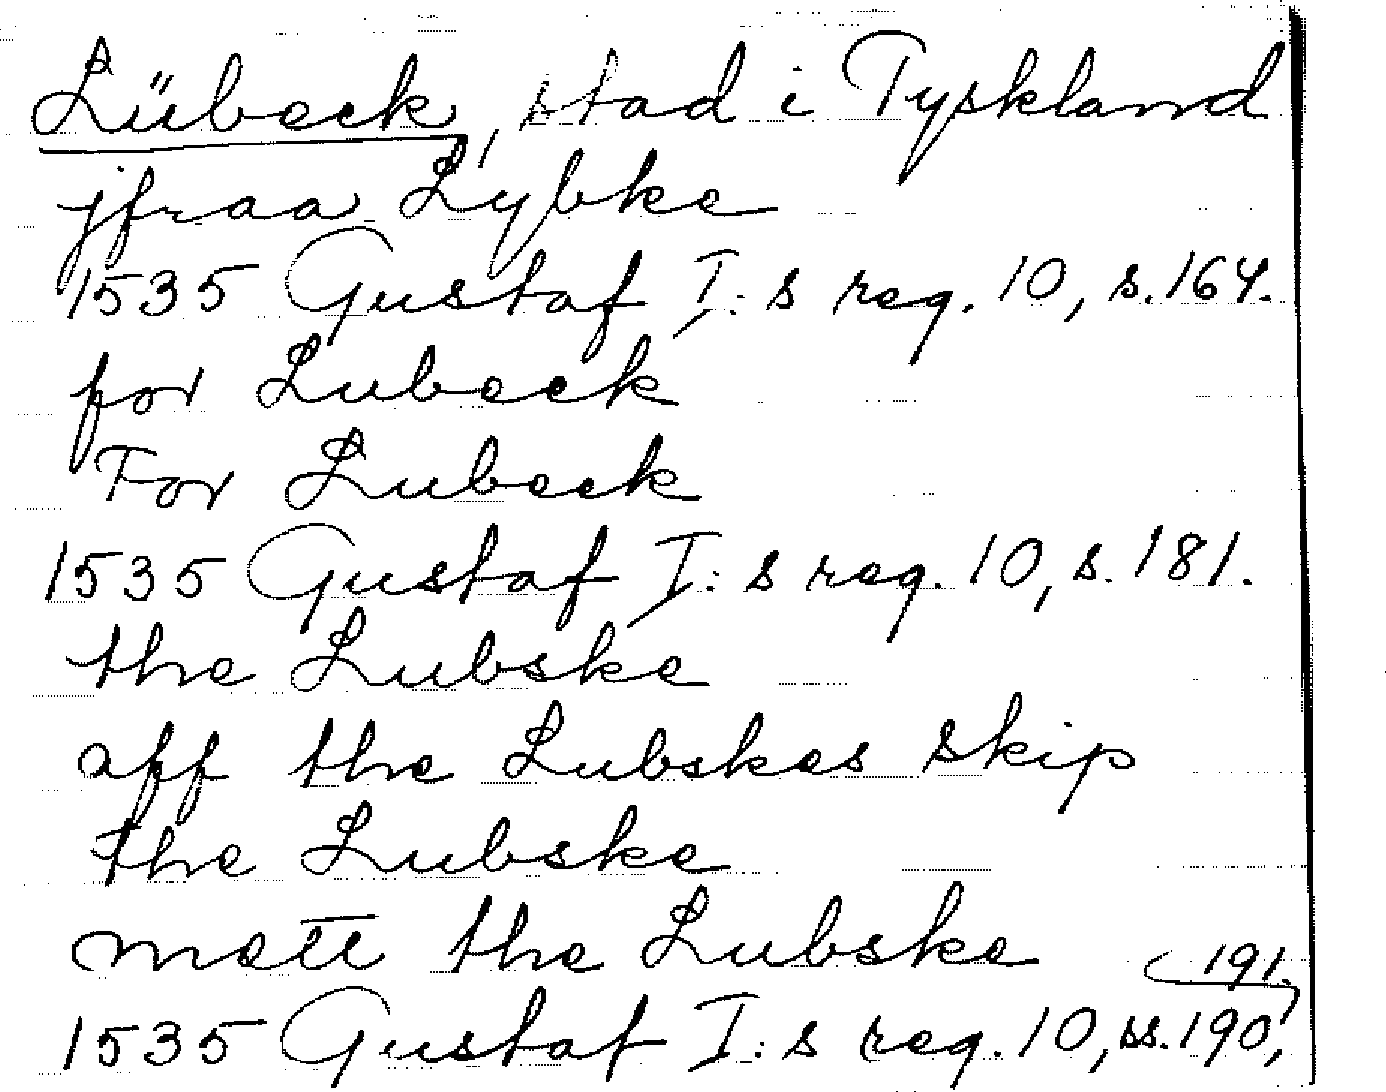 Lübeck, stad i Tyskland
jfraa Lybke
1535 Gustaf I:s reg. 10, s. 164.
for Lubeck
For Lubeck
1535 Gustaf I:s reg. 10, s. 181.
the Lubske
aff the Lubskes skip
the Lubske
mett the Lubske
1535 Gustaf I:s reg. 10, ss. 190, 191.